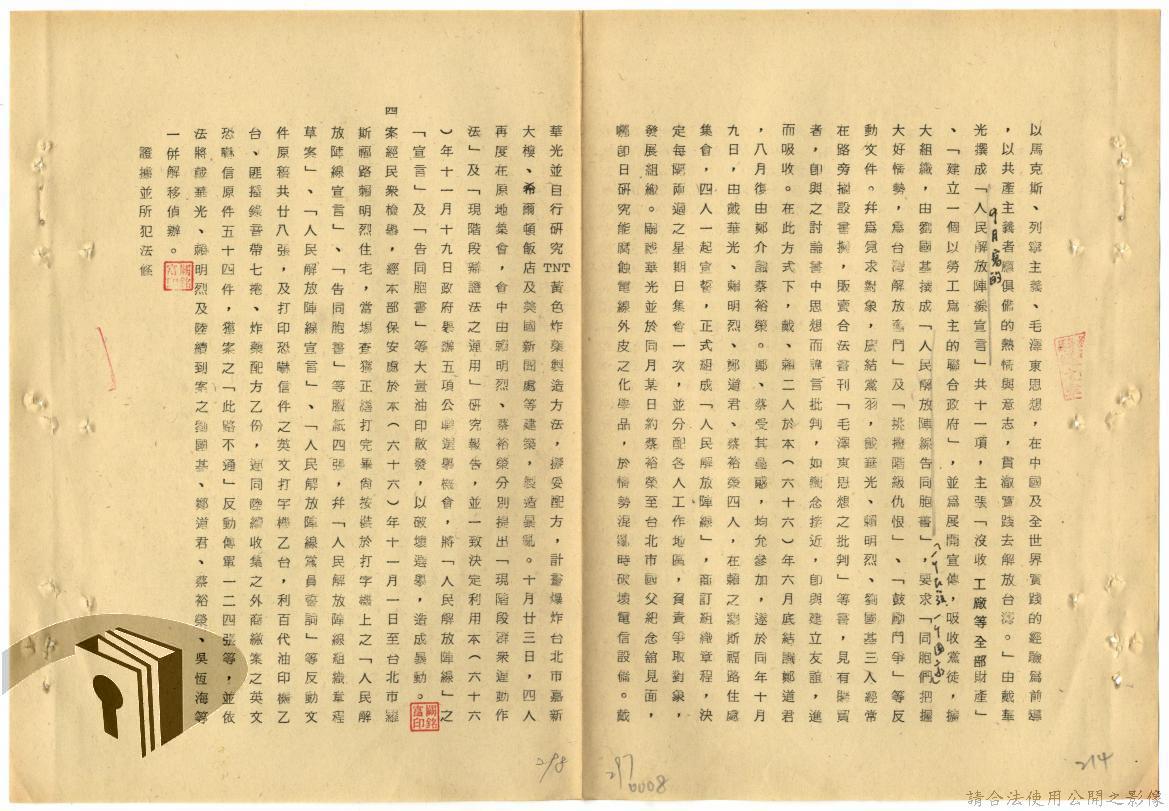 以馬克斯、列寧主義、毛澤東思想，在中國及全世界實踐的經驗爲前導
，以共產主義者應俱備的熱情與意志，貫徹實踐去解放台灣。」由戴華
光撰成「人民解放陣線宣言」共十一項，主張「沒收工廠等全部財產」
9月寫的
、「建立一個以勞工爲主的聯合政府」，並爲展開宣傳，吸收黨徒，擴
大組織，由劉國基撰成「人民解放陣線告同胞書」，要求「同胞們把握
大好情勢，爲台灣解放奮鬥」及「挑撥階級仇恨」、「鼓勵鬥爭」等反
動文件。幷爲覓求對象，廣結黨羽，戴華光、賴明烈、劉國基三人經常
在路旁擺設書攤，販賣合法書刊「毛澤東思想之批判」等書，見有購買
者，即與之討論書中思想而諱言批判，如觀念接近，即與建立友誼，進
而吸收。在此方式下，戴、賴二人於本（六十六）年六月底結識鄭道君
，八月復由鄭介識蔡裕榮。鄭、蔡受其蠱惑，均允參加，遂於同年十月
九日，由戴華光、賴明烈、鄭道君、蔡裕榮四人，在賴之羅斯福路住處
集會，四人一起宣誓，正式組成「人民解放陣線」，商訂組織章程，決
定每隔兩週之星期日集會一次，並分配各人工作地區，負責爭取對象，
發展組織。嗣戴華光並於同月某日約蔡裕榮至台北市國父紀念館見面，
囑卽日研究能腐蝕電線外皮之化學品，於情勢混亂時破壞電信設備。戴
214
297
0008
華光並自行研究TNT黃色炸藥製造方法，擬妥配方，計畫爆炸台北市嘉新
大樓、希爾頓飯店及美國新聞處等建築，製造暴亂。十月廿三日，四人
再度在原地集會，會中由賴明烈、蔡裕榮分別提出「現階段群衆運動作
法」及「現階段辯證法之運用」研究報告，並一致決定利用本（六十六
）年十一月十九日政府舉辦五項公職選舉機會，將「人民解放陣線」之
「宣言」及「告同胞書」等大量油印散發，以破壞選舉，造成暴動。
四案經民衆檢舉，經本部保安處於本（六十六）年十一月一日至台北市羅
斯福路賴明烈住宅，當場查獲正繕打完畢尚按裝於打字機上之「人民解
放陣線宣言」、「告同胞書」等臘紙四張，幷「人民解放陣線組織章程
草案」、「人民解放陣線宣言」、「人民解放陣線黨員誓詞」等反動文
件原稿共廿八張，及打印恐嚇信件之英文打字機乙台，利百代油印機乙
台、匪播錄音帶七捲、炸藥配方乙份，連同陸續收集之外商繳案之英文
恐嚇信原件五十四件，獲案之「此路不通」反動傳單一二四張等，並依
法將戴華光、賴明烈及陸續到案之劉國基、鄭道君、蔡裕榮、吳恆海等
一併解移偵辦。
證據並所犯法條
298
請合法使用公開之影像